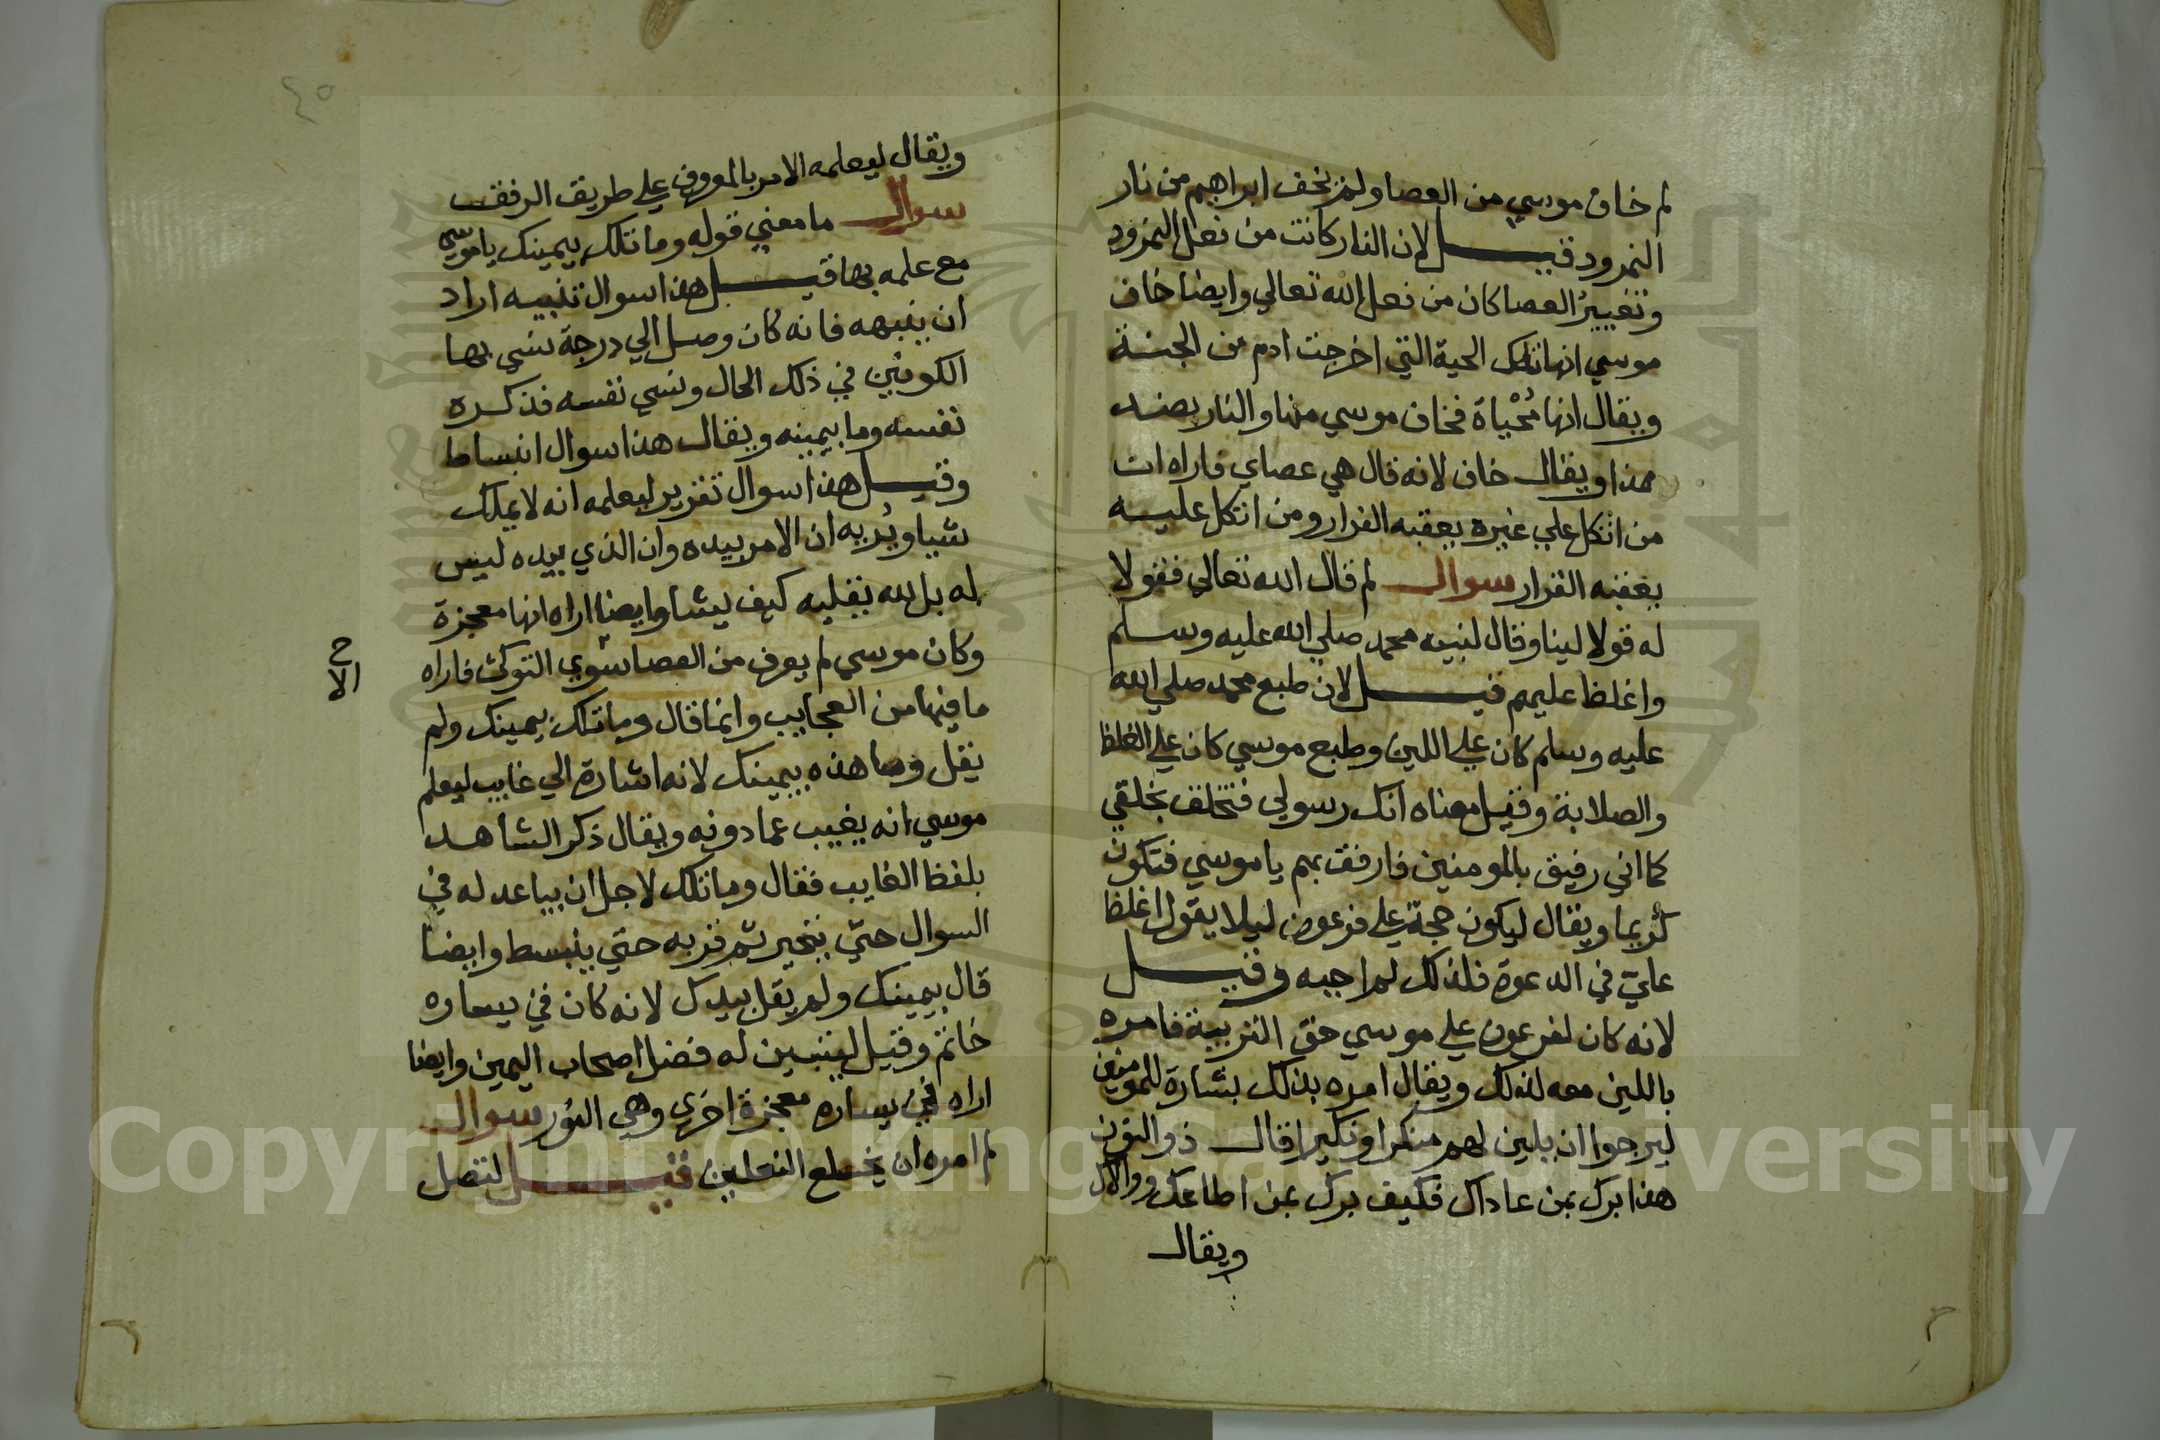 لم خاف موسي من العصا ولم يخف ابراهيم من نار
النمرود قيل لان النار كانت من فعل النمرود
وتغيير العصا كان من فعل الله تعالي وايضا خاف
موسي انها تلك الحية التي اخرجت ادم من الجنة
ويقال انها مُحْياة فخاف موسي منها والنار بضد
هذا ويقال خاف لانه قال هي عصاي فاراه ان
من اتكل علي غيره يعقبه الفرار ومن اتكل عليه
يعقبه القرار سوال لم قال الله تعالي فقولا
له قولا لينا وقال لنبيه محمد صلي الله عليه وسلم
واغلظ عليهم قيل لان طبع محمد صلي الله
عليه وسلم كان علي اللين وطبع موسي كان علي الغلظ
والصلابة وقيل معناه انك رسولي فتخلق بخلقي
كما اني رفيق بالمومنين فارفق بهم يا موسي فتكون
كريما ويقال ليكون حجة علي فرعون ليلا يقول اغلظ
عليّ في الدعوة فلذلك لم اجبه وقيل
لانه كان لفرعون علي موسي حق التربية فامره
باللين معه لذلك ويقال امره بذلك بشارة للمومنين
ليرجوا ان يلين لهم منكرا ونكيرا قال ذو النون
هذا برك بمن عاداك فكيف برك بمن اطاعك ووالاك
ويقال
٤٥
ويقال ليعلمه الامر بالمعروف علي طريق الرفق
سوال ما معني قوله وما تلك بيمينك يا موسي
مع علمه بها قيل هذا سوال تنبيه اراد
ان ينبهه فانه كان وصل الي درجة نسي بها
الكونين في ذلك الحال ونسي نفسه فذكره
نفسه وما بيمينه ويقال هذا سوال انبساط
وقيل هذا سوال تقرير ليعلمه انه لا يملك
شيا ويُريه ان الامر بيده وان الذي بيده ليس
له بل لله يقلبه كيف يشا وايضا اراه انها معجزة
وكان موسي لم يعرف من العصا سوي التوكئ فاراه
ما فيها من العجايب وانما قال وما تلك بيمينك ولم
يقل وما هذه بيمينك لانه اشارة الي غايب ليعلم
موسي انه يغيب عما دونه ويقال ذكر الشاهد
بلفظ الغايب فقال وما تلك لاجل ان يباعد له في
السوال حتي يتحير ثم قربه حتي ينبسط وايضا
قال بيمينك ولم يقل بيدك لانه كان في يساره
خاتم وقيل ليتبين له فضل اصحاب اليمين وايضا
اراه في يساره معجزة اخري وهي النُور سوال
لم امره ان يخلع النعلين قيل لتصل
Copyright © King Saud University